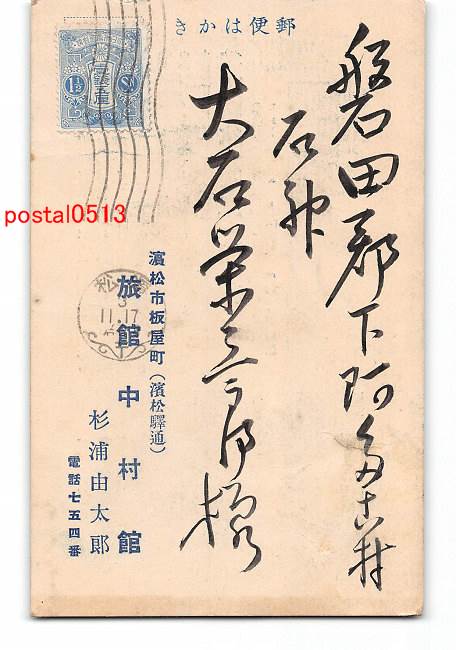 郵便はかき
磐田郡下阿多古村
石神
大石栄三郎様
濱松市板屋町（濱松驛通）
旅館 中村館
杉浦由太郎
電話七五四番
1½
11.17
postal0513